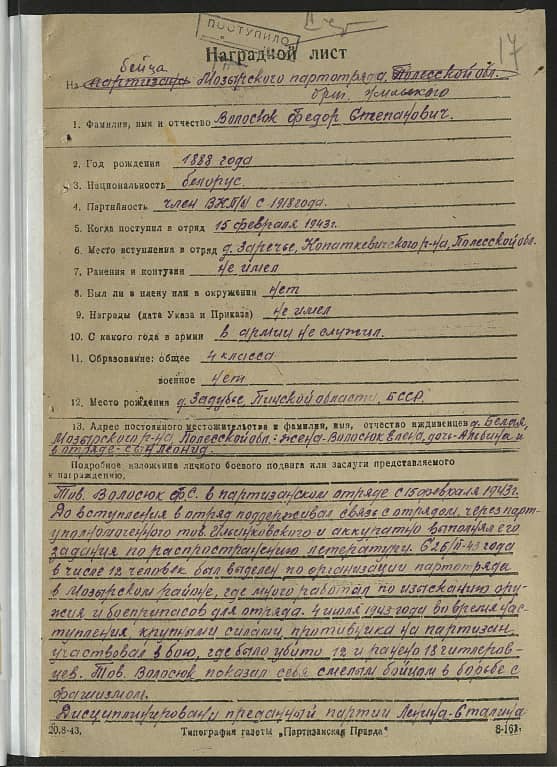 ПОСТУПИЛО
17
Наградной лист
бойца
На партизана Мозырского партотряда, Полесской обл.
бриг.
1. Фамилия, имя и отчество Волосюк Федор Степанович.
2. Год рождения 1888 года
3. Национальность белорус.
4. Партийность член ВКП/б/ с 1918 года.
5. Когда поступил в отряд 15 февраля 1943 г.
6. Место вступления в отряд д. Заречье, Копаткевичского р-на, Полесской обл.
7. Ранения и контузии не имел
8. Был ли в плену или в окружении нет
9. Награды (дата Указа и Приказа) не имел
10. С какого года в армии в армии не служил.
11. Образование: общее 4 класса
военное нет
12. Место рождения д. Задубье, Пинской области, БССР.
13. Адрес постоянного местожительства и фамилия, имя, отчество иждивенцев д. Белая,
Мозырского р-на, Полесской обл.: жена-Волосюк Елена, дочь-Альвина и
в отряде-сын Леонид.
Подробное изложение личного боевого подвига или заслуги представляемого
к награждению.
Тов. Волосюк Ф.С. в партизанском отряде с 15 февраля 1943 г.
До вступления в отряд поддерживал связь с отрядом, через парт-
уполномоченного тов. Ильинковского и аккуратно выполнял его
задания по распространению летературы. С 26/II-43 года
в числе 12 человек был выделен по организации партотряда
в Мозырском районе, где много работал по изысканию ору-
жия и боеприпасов для отряда. 4 июля 1943 года во время нас-
тупления, крупными силами, противника на партизан,
участвовал в бою, где было убито 12 и ранено 18 гитлеров-
цев. Тов. Волосюк показал себя смелым бойцом в борьбе с
фашизмом.
Дисциплинирован, преданный партии Ленина-Сталина
20.8-43. Типография газеты „Партизанская Правда"